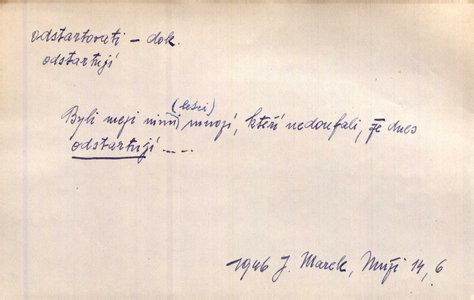 odstartovati – dok.
odstartují
(letci)
Byli mezi nimi mnozí, kteří nedoufali, že dnes
odstartují ----
1946 J. Marek, Muži 14, 6